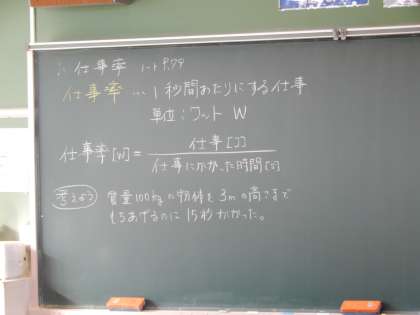 ∴ 仕事率 ノート P.97
仕事率 … 1秒間あたりにする仕事
単位：ワット W
仕事率[W] = 仕事[J] / 仕事にかかった時間[s]
考えよう 質量100kgの物体を3mの高さまで
もちあげるのに15秒かかった。